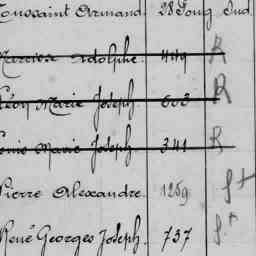 Toussaint Armand. 28 Long Sud.
Narcisse Adolphe. 449 R
Léon Marie Joseph. 603 R
Louis Marie Joseph 341 R
Pierre Alexandre. 1269
René Georges Joseph. 737